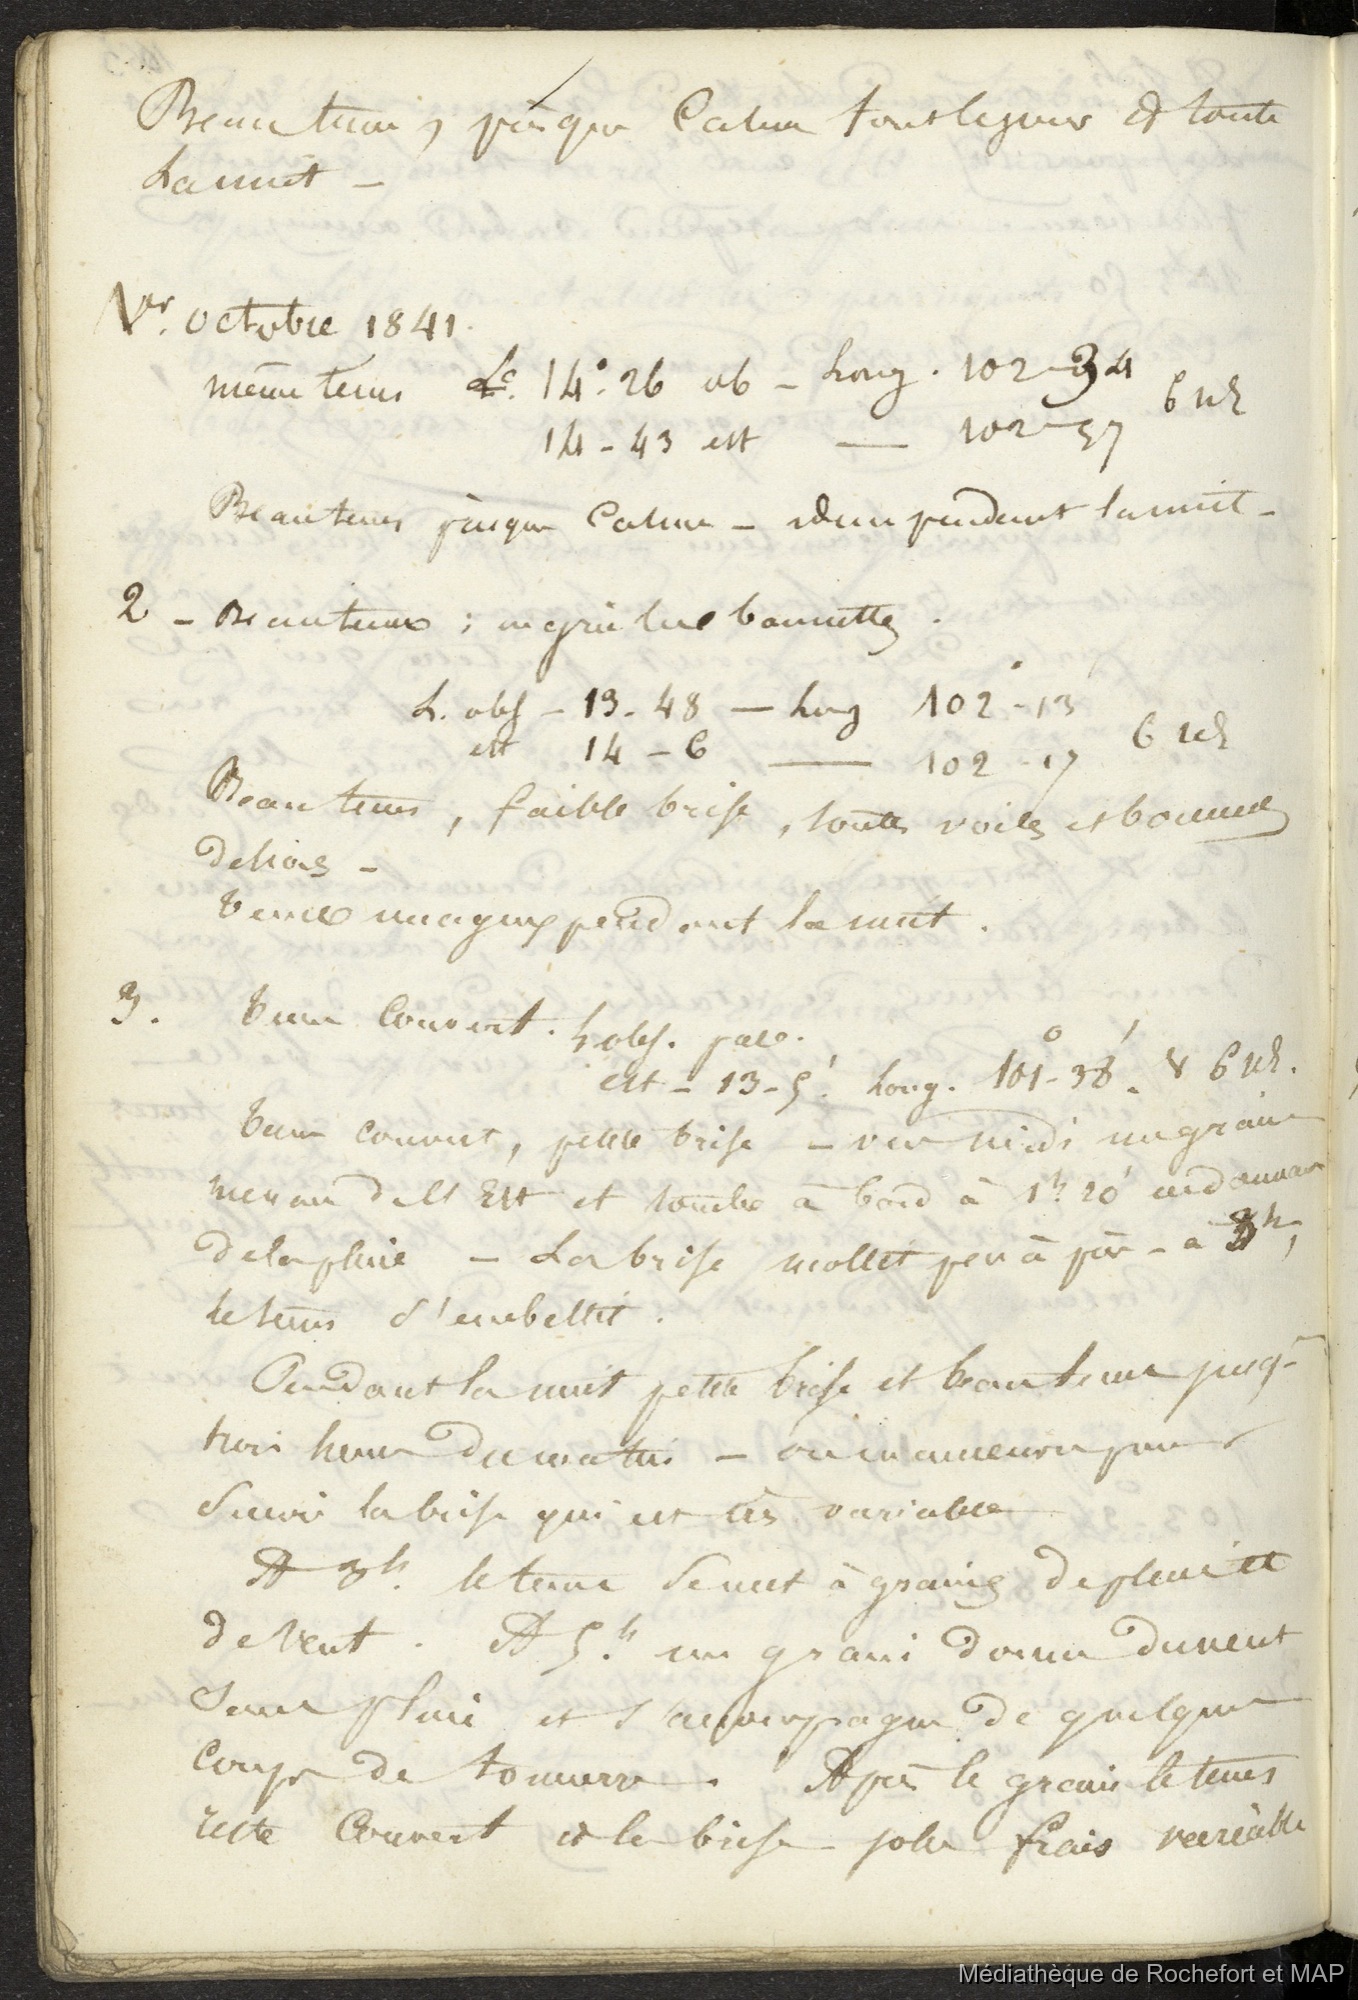 Beau tems, presque Calme tout le jour et toute
La nuit –
Ver. octobre 1841.
même tems Le. 14°. 26 ob – Long. 102–34
14 – 43 est — 102–37 6 nds
Beau tems presque Calme – idem pendant la nuit –
2 – Beau tems ; on grée les bonnettes.
L. obs – 13 – 48 — Long 102° – 13'
est 14 – 6 — 102 – 17 6 nds
Beau tems, faible brise, toutes voiles et bonnettes
dehors –
Tems nuageux pendant la nuit.
3. Tems Couvert. L obs. pas.
est – 13 – 5' Long. 101° – 38'. 6 nds.
Tems couvert, petite brise – vers midi un grain
menace de l'Est et tombe à bord à 1h 20' en donnant
de la pluie – La brise mollit peu à peu – à 3h,
le tems s'embellit.
Pendant la nuit petite brise et beau tems jusq–
trois heures du matin – on
suivre la brise qui est très variable
A 3h. le tems se met à grains de pluie et
de vent. A 5h. un grain donne du vent
sans pluie et s'accompagne de quelques
Coups de tonnerre. Après le grain le tems
reste Couvert et la brise jolie frais variable
Médiathèque de Rochefort et MAP